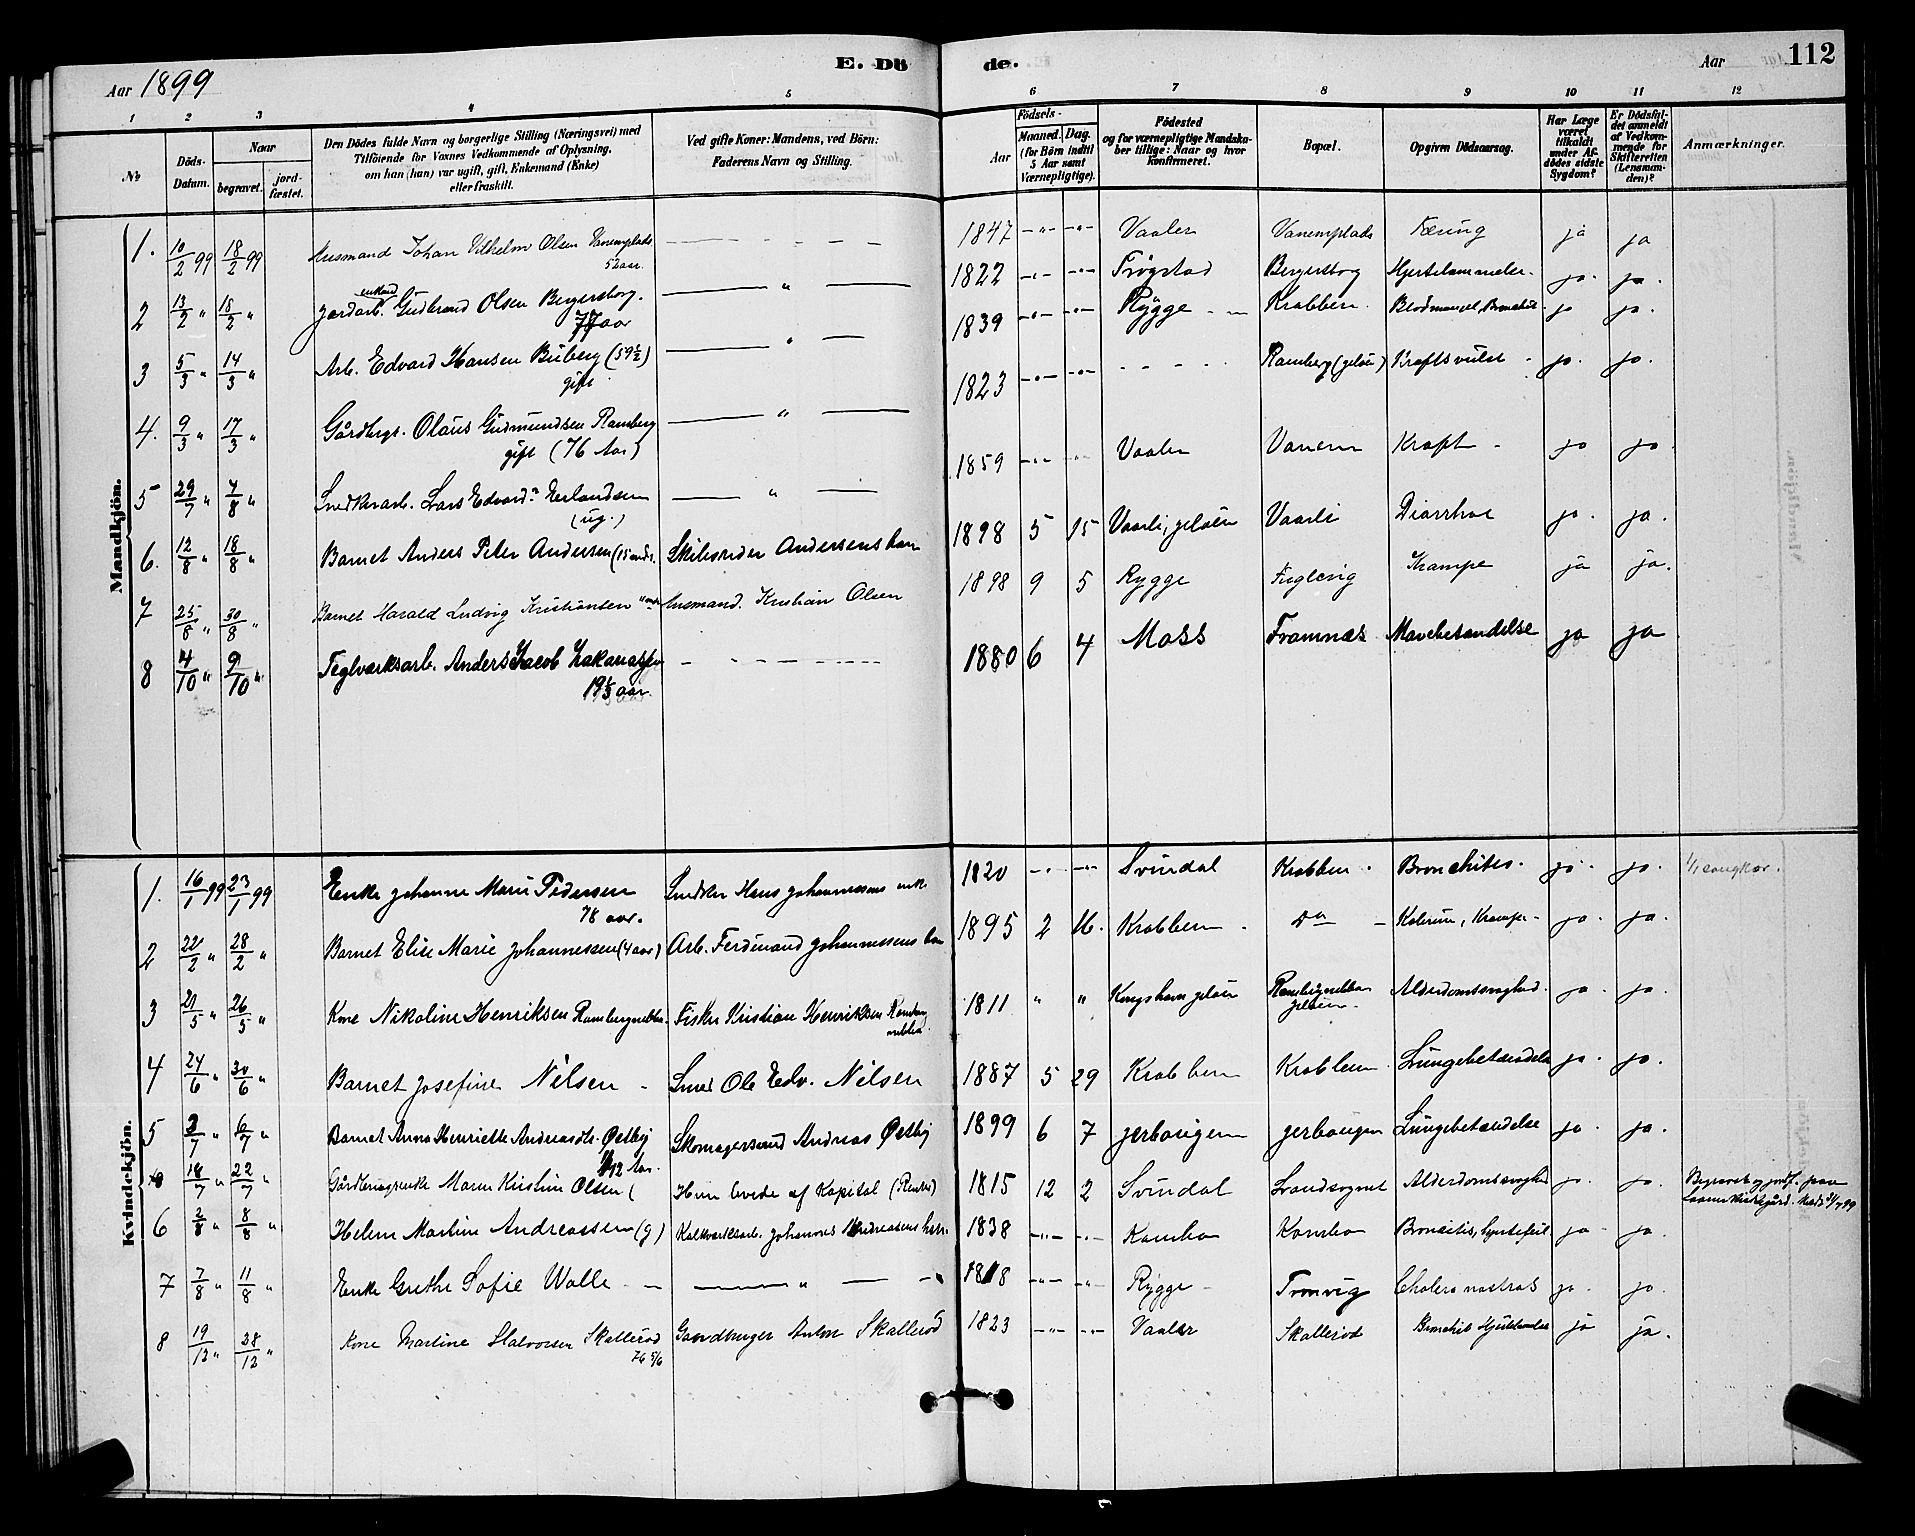 E. Dö de.
Aar 1899
Aar 112
1 2 3 4 5 6 7 8 9 10 11 12
No
Döds-Datum.
Naar
begravet.
jord-fæstet.
Den Dödes fulde Navn og borgerlige Stilling (Næringsvei) med
Tilföiende for Voxnes Vedkommende af Oplysning,
om han (hun) var ugift, gift, Enkemand (Enke)
eller fraskilt.
Ved gifte Koner: Mandens, ved Börn:
Faderens Navn og Stilling.
Födsels-
Aar
Maaned. Dag.
(for Börn indtil
5 Aar samt
Værnepligtige).
Födested
og for værnepligtige Mandska-
ber tillige: Naar og hvor
konfirmeret.
Bopæl.
Opgiven Dödsaarsag.
Har Læge
været
tilkaldt
under Af-
dödes sidste
Sygdom?
Er Dödsfal-
det anmeldt
af Vedkom-
mende for
Skifteretten
(Lensman-
den)?
Anmærkninger.
Mandkjön.
1. 10/2 99 18/2 99 Husmand Johan Vilhelm Olsen Vanemplads 52 aar. 1847 -"- -"- Vaaler Vanemplads Tæring ja ja
2 13/2 " 18/2 " Jordarb. enkem Gudbrand Olsen Bergersborg. 77 aar " 1822 -"- -"- Trøgstad Bergersborg Hjertelammelse. ja. ja.
3 5/3 " 14/3 " Arb. Edvard Hansen Biiberg (59 1/2) gift " 1839 -"- -"- Rygge Krabben. Blodmangel, Bronchit ja ja.
4. 9/3 " 17/3 " Gårdbrgr. Olaus Gudmundsen Ramberg gift (76 Aar) " 1823 -"- -"- Ramberg (Jeløen) Kræftsvulst - ja. ja.
5 29/7 " 7/8 " Snedkerarb. Lars Edvard Erlandsen (ug.) " 1859 -"- Vaaler Vanem Kræft - ja ja.
6. 12/8 " 18/8 " Barnet Anders Peter Andersen (15 mdr. Skibsreder Andersens barn 1898 5 15 Vaarli, Jeløen Vaarli Diarrhoe ja. ja.
7 25/8 " 30/8 " Barnet Harald Ludvig Kristiansen Husmand. Kristian Olsen 1898 9 5 Rygge Fuglevig Krampe ja ja.
8 4/10 " 9/10 " Teglværksarb. Anders Jacob Zakariassen 19 1/3 aar. 1880 6 4 Moss Framnæs Mavebetændelse ja ja
Kvindekjön.
1. 16/1 99 23/1 99 Enke Johanne Marie Pedersen 78 aar. Snedker Hans Johannessens enke 1820 -"- -"- Svindal Krabben. Bronchites. ja. ja.
2 22/2 " 28/2 " Barnet Elise Marie Johannessen (4 aar) Arb. Ferdinand Johannessens barn 1895 2 16. Krabben Do - Kolerine, Krampe - ja. ja.
3 21/5 " 26/5 " Kone Nikoline Henriksen Rambergnebben. Fisker Kristian Henriksen Ramberg nebben. 1811 " " Kongshavn Jeløen Rambergnebben Jeløen. Alderdomssvaghed. ja. ja.
4 24/6 " 30/6 " Barnet Josefine Nilsen - Smed Ole Edv. Nilsen 1887 5 29 Krabben Krabben Lungebetændelse ja. ja.
5 3/7 " 6/7 " Barnet Anna Henriette Andreasdtr. Østby 1/12 Aar. Skomagersvend Andreas Østby 1899 6 7 Jerbaugen Jerbaugen Lungebetændelse ja. ja.
18/7 " 22/7 " Gårdbrugrenke Maren Kristine Olsen ( Hun levede af Kapital (Renter) 1815 12 2 Svindal Landsognet Alderdomssvaghed ja. ja. Begravet og jordf. paa
6 2/8 " 8/8 " Helene Martine Andreassen (g) Kalkværksarb. Johannes Andreassens hustru 1838 -"- -"- Kambo Kambo Broncitis, hjertefeil ja ja.
7 7/8 " 11/8 " Enke Grethe Sofie Walle - " 1818 -"- -"- Rygge - Tronvig Cholera nostras ja. ja.
8 19/12 " 28/12 " Kone Martine Halvorsen Skallerød 76 5/6 Gaardbruger Anton Skallerød 1823 -"- -"- Vaaler Skallerød ja ja.